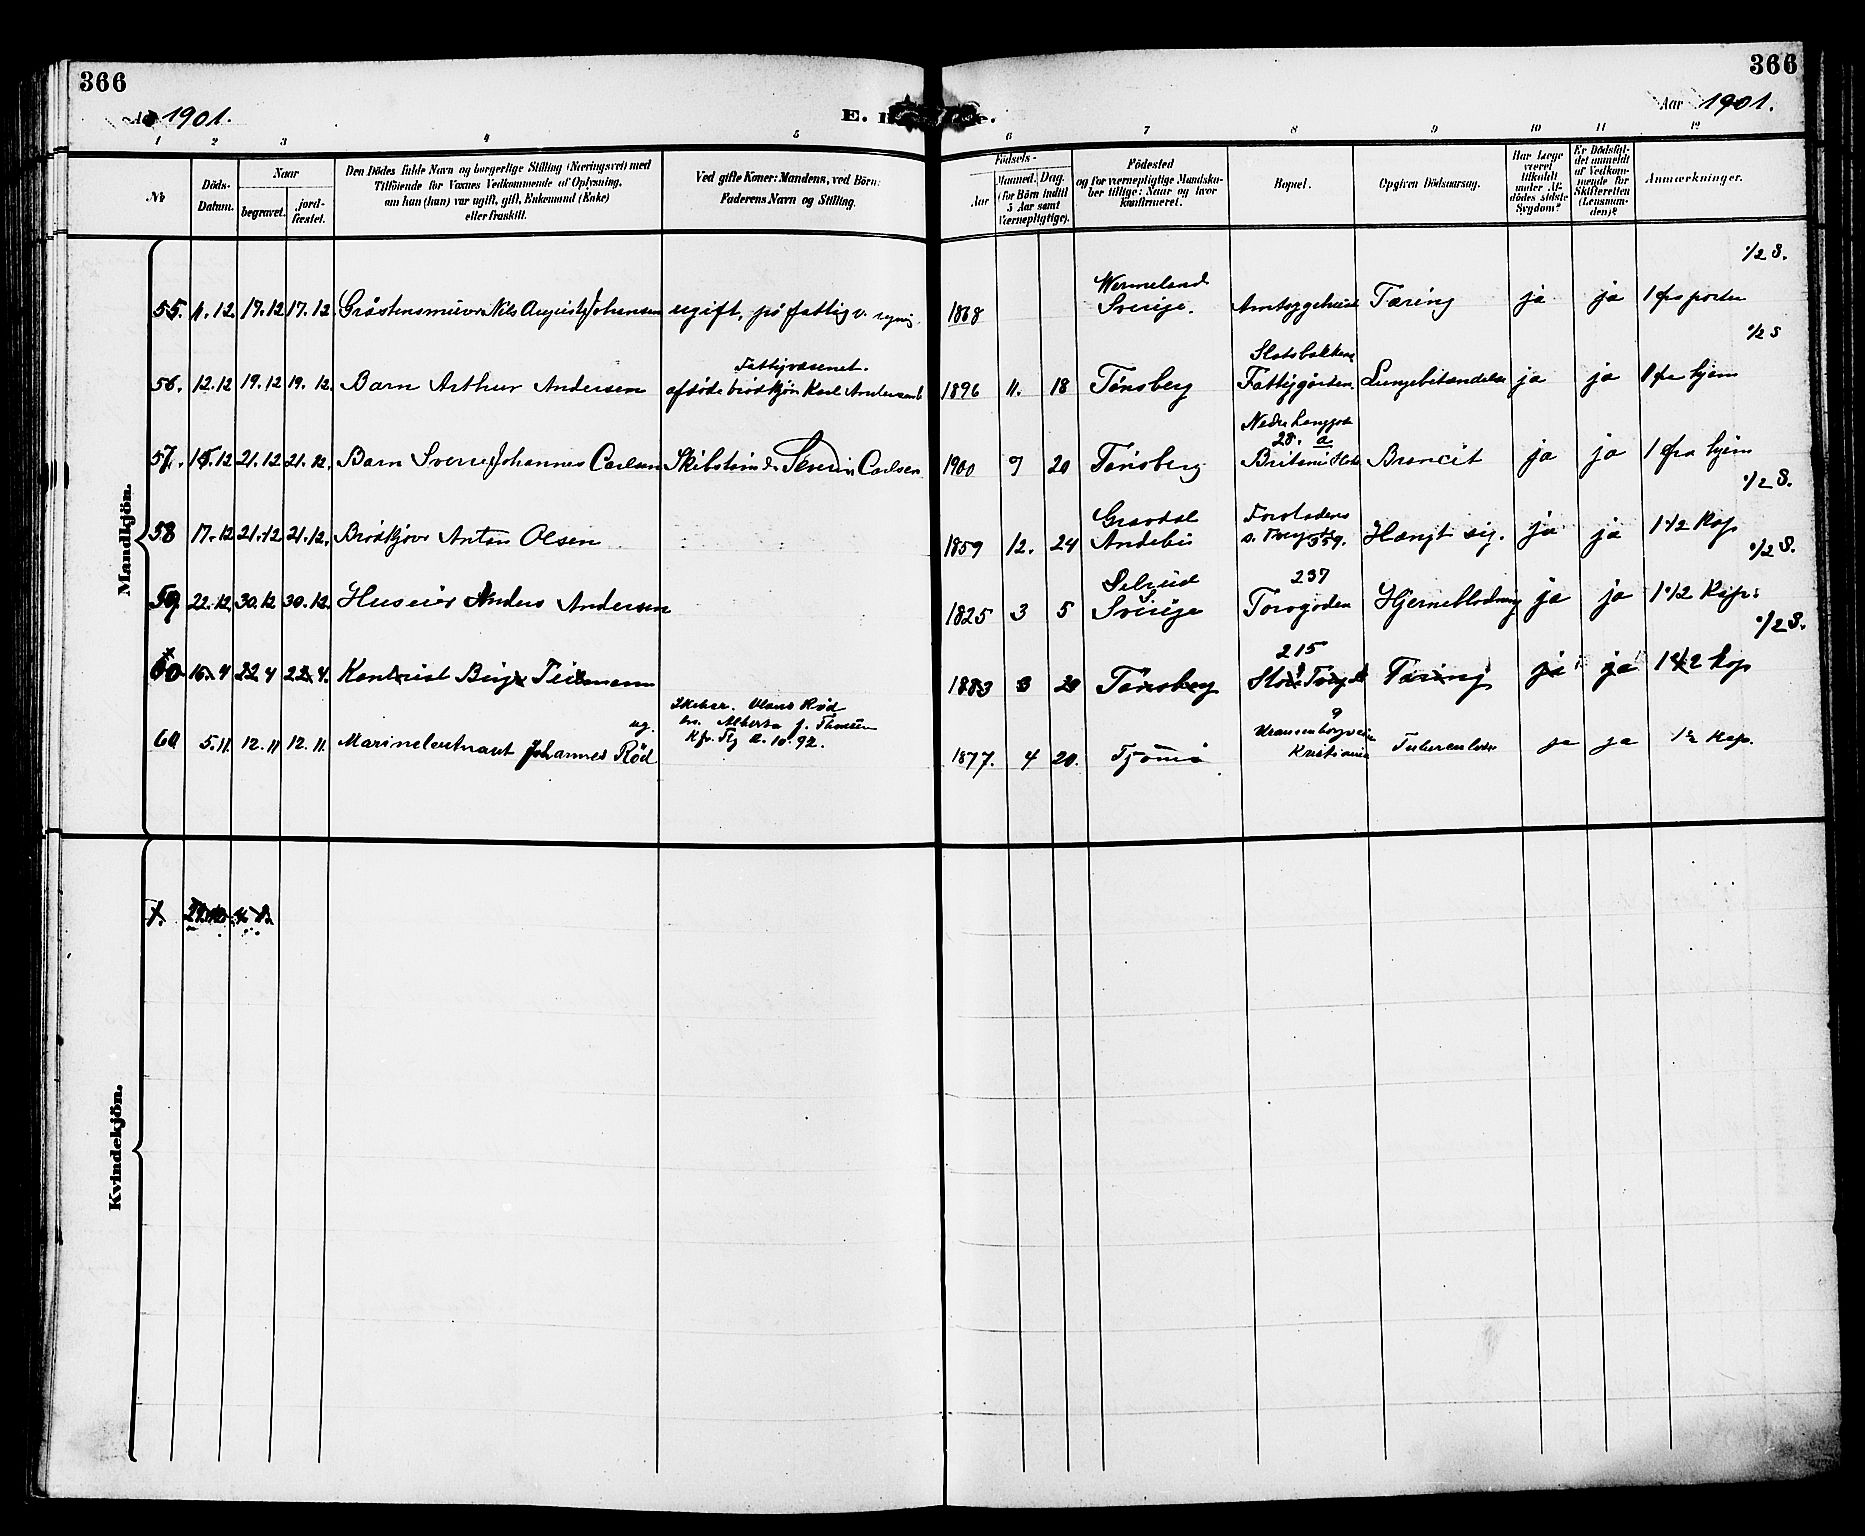 366
366
Aar 1901.
Aar 1901.
E.
1 2 3 4 5 6 7 8 9 10 11 12
No.
Döds-Datum.
Naar
begravet.
jord-fæstet.
Den Dödes fulde Navn og borgerlige Stilling (Næringsvei) med
Tilföiende for Voxnes Vedkommende af Oplysning,
om han (hun) var ugift, gift, Enkemand (Enke)
eller fraskilt.
Ved gifte Koner: Mandens, ved Börn:
Faderens Navn og Stilling.
Födsels-
Aar
Maaned. Dag.
(for Börn indtil
5 Aar samt
Værnepligtige).
Födested
og for værnepligtige Mandska-
ber tillige: Naar og hvor
konfirmeret.
Bopæl.
Opgiven Dödsaarsag.
Har Læge
været
tilkaldt
under Af-
dödes sidste
Sygdom?
Er Dödsfal-
det anmeldt
af Vedkom-
mende for
Skifteretten
(Lensman-
den)?
Anmærkninger.
Mandkjön.
1/2 S.
Wermeland
55. 11.12 17.12 17.12 Gråstensmurer Nils August Johansen ugift, på fattigv. 1868 Sverige. Amtsygehuset Tæring ja ja 1 fra porten
1/2 S
Fattigvæsenet. Slotsbakken
56. 12.12 19.12 19.12. Barn Arthur Andersen afdöde brödkjör. Karl Andersen 1896 11. 18 Tönsberg Fattiggården. Lungebetændelse ja ja 1 fra hjem
Nedre Langgade
28. a
57. 15.12 21.12 21.12. Barn Sverre Johannes Carlsen Skibstömm. Severin Carlsen 1900 9 20 Tönsberg Broncit ja ja 1 fra hjem
1/2 S.
Gravdal
58 17.12 21.12 21.12. Brödkjörer Anton Olsen 1859 12. 24 Andebu 359. Hængt sig. ja ja 1 1/2 Kap
1/2 S.
237
59 22.12 30.12 30.12. Huseier Anders Andersen 1825 3 5 Sverige Torvgaden Hjerneblödning ja ja 1 1/2 Kap:
1/2 S.
215
60 16.4 22 4 22 4. Kontorist Birger Teilmann 1883 3 29 Tönsberg Store Torvgt Tæring ja ja 1 1/2 Kap
Skibsr. Olaus Röd
ug. Alberta f. Thorsen
60 5.11. 12.11 12.11. Marineleutnant Johannes Röd Kfr. Tlf 2.10.92. 1877. 4 20. Tjömö Kristiania Tuberculose ja ja 1 1/2 Kap.
Kvindekjön.
1. 29.10